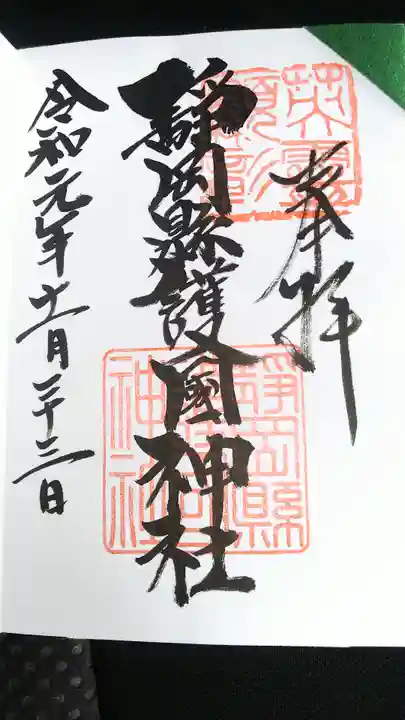 奉拝
英霊顕彰
静岡縣護國神社
静岡縣護國神社
令和元年十一月二十三日